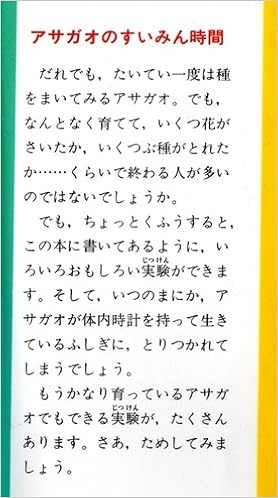 アサガオのすいみん時間
だれでも，たいてい一度は種
をまいてみるアサガオ。でも，
なんとなく育てて，いくつ花が
さいたか，いくつぶ種がとれた
か……くらいで終わる人が多い
のではないでしょうか。
でも，ちょっとくふうすると，
この本に書いてあるように，い
ろいろおもしろい実験ができま
じっけん
す。そして，いつのまにか，ア
サガオが体内時計を持って生き
ているふしぎに，とりつかれて
しまうでしょう。
もうかなり育っているアサガ
オでもできる実験が，たくさん
じっけん
あります。さあ，ためしてみま
しょう。